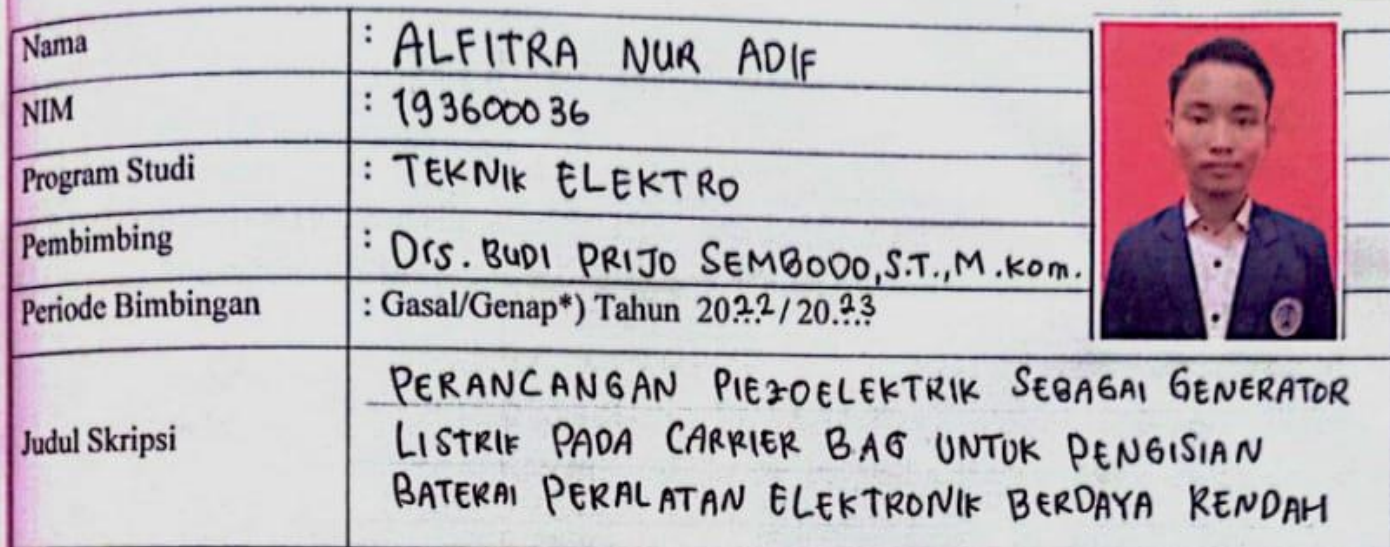 Nama : ALFITRA NUR ADIF
NIM : 193600036
Program Studi : TEKNIK ELEKTRO
Pembimbing : Drs. BUDI PRIJO SEMBODO, S.T., M.Kom.
Periode Bimbingan : Gasal/Genap*) Tahun 2022/2023
Judul Skripsi
PERANCANGAN PIEZOELEKTRIK SEBAGAI GENERATOR
LISTRIK PADA CARRIER BAG UNTUK PENGISIAN
BATERAI PERALATAN ELEKTRONIK BERDAYA RENDAH